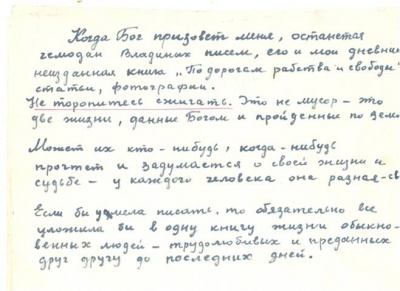 Когда Бог призовет меня, останется
чемодан Владиных писем, его и мои дневник
неизданная книга „По дорогам рабства и свободы"
статьи, фотографии.
Не торопитесь сжигать. Это не мусор – это
две жизни, данные Богом и пройденные по земл
Может их кто-нибудь, когда-нибудь
прочтет и задумается о своей жизни и
судьбе – у каждого человека она разная–св
Если бы умела писать. то обязательно все
уложила бы в одну книгу жизни обыкно-
венных людей – трудолюбивых и преданных
друг другу до последних дней.